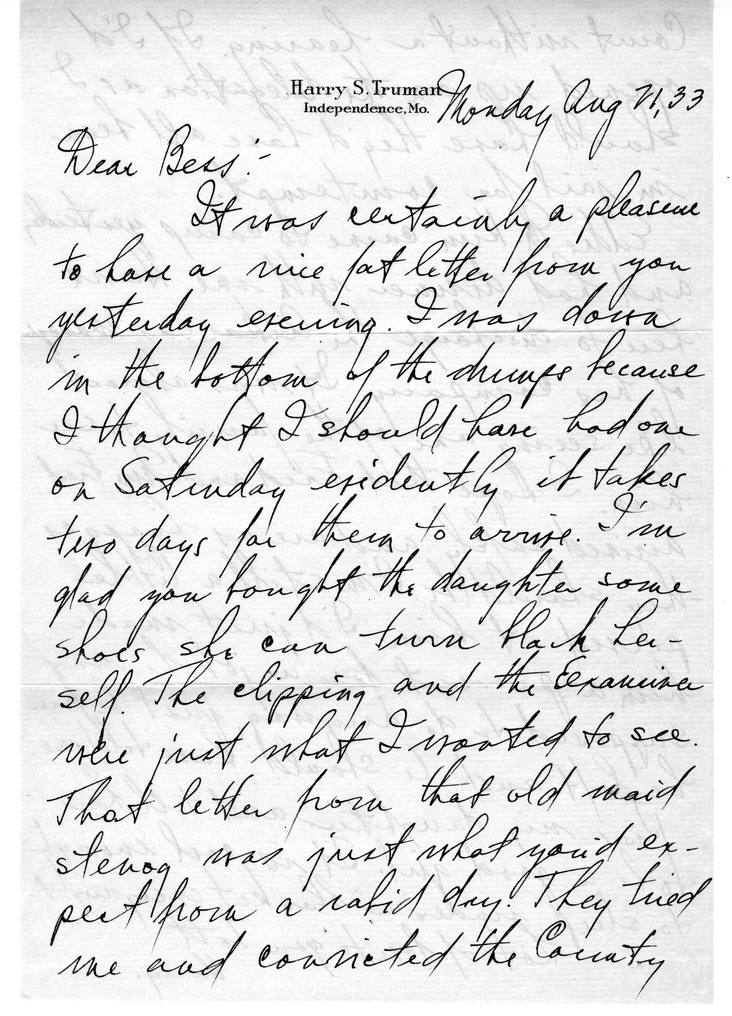 Harry S. Truman
Independence, Mo.
Monday Aug 21, 33
Dear Bess:-
It was certainly a pleasure
to have a nice fat letter from you
yesterday evening. I was down
in the bottom of the dumps because
I thought I should have had one
on Saturday evidently it takes
two days for them to arrive. I'm
glad you bought the daughter some
shoes she can turn black her-
self. The clipping and the Examiner
were just what I wanted to see.
That letter from that old maid
stenog was just what you'd ex-
pect from a rabid dry. They tried
me and convicted the County